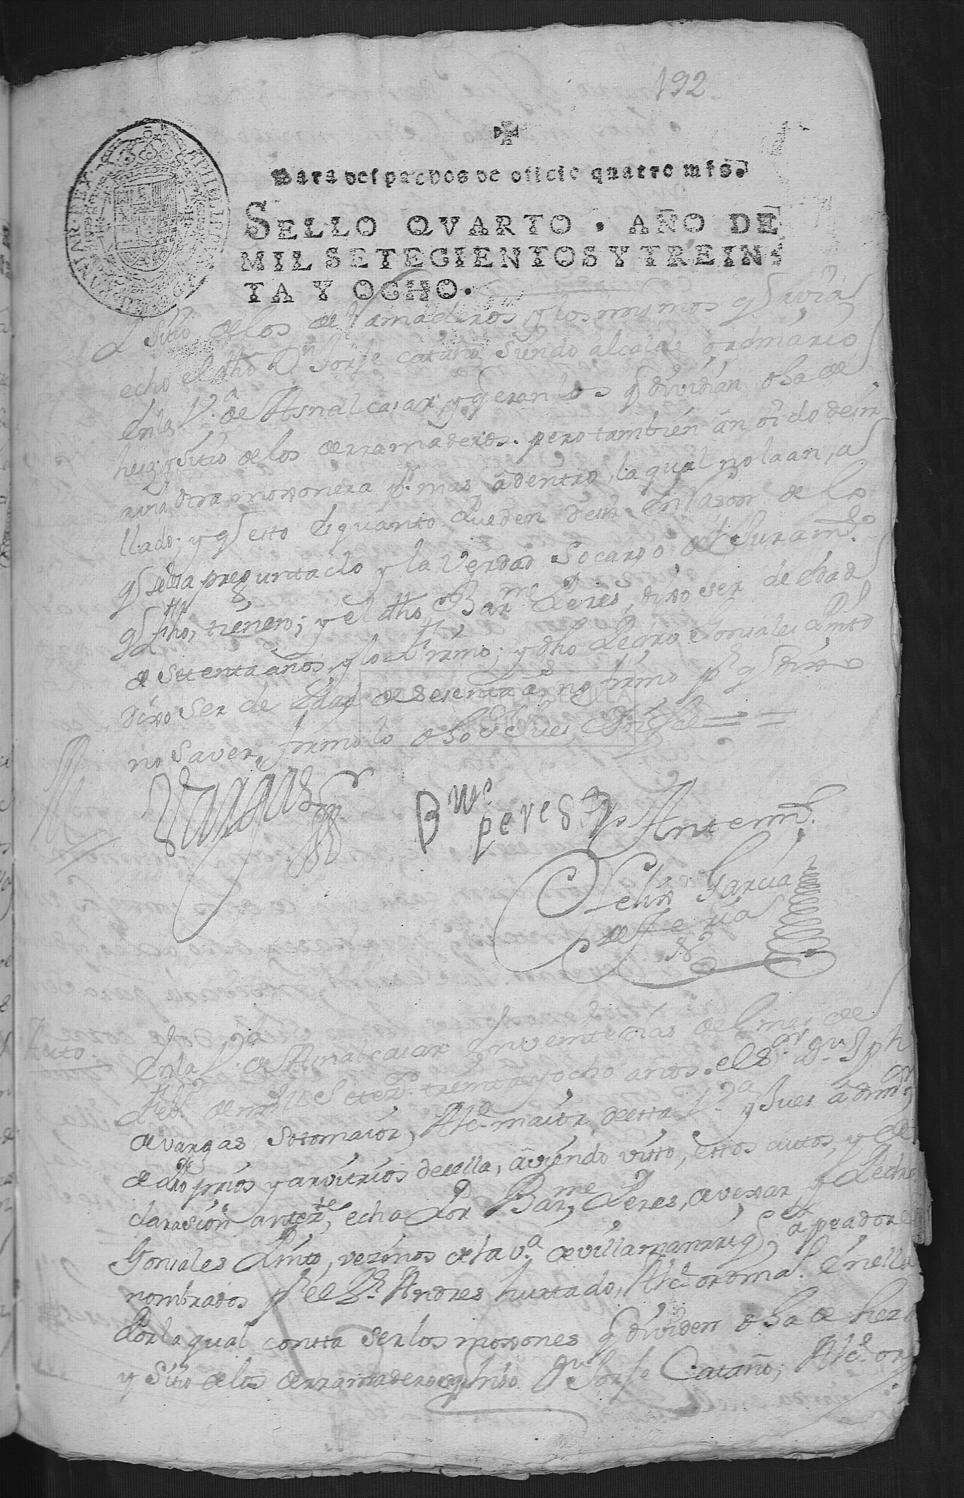 192
Para despachos de oficio quatro mrs.
SELLO QVARTO . AÑO DE
MIL SETECIENTOS Y TREIN-
TA Y OCHO.
sitio de los de Ramaderos y los mismos q
echo el dho Dn Jorje Cataño siendo alcalde ordinario
En la Va de Asnalcasar y q eran los q dividian dha de
hesa y sitio de los derramaderos. pero tambien an oido desir
aria otra moxonera ps mas adentro, la qual no la an, a
llado; y q esto Es quanto Pueden desir En rason de lo
q se les a preguntado y la Verdad so cargo del Juramto
q fho, tienen; y el dho Barme Peres, dixo ser de edad
de setenta años, y lo firmo; y dho Pedro Gonsales Pinto
Dixo ser de Edad de sesenta as no firmo pr q dixo
no saver, firmolo dho S Jues Doi fee
Vargas
Bme peres
Ante mi
Felix Garcia
de Mesia
Auto.
En la Va de Asnalcasar En veinte dias del mes de
Febo de mill Setezs treinta y ocho años. el Sr Dn Jph
de vargas Sotomaior, Alce maior de esta Va y Jues admor
de propios y arvitrios de ella, aviendo visto, estos autos, y de
clarasion antezte, echa Por Barme Peres, avexar y Pedro
Gonsales Pinto, vezinos de la va de villamanrrique, apeadores
nombrados pr el Sr Andres hurtado, Alce ordina En ella
Por la qual consta ser los moxones q dividen dha de hesa
y sitio de los derramaderos q hiso Dn Jorje Cataño, Alce or